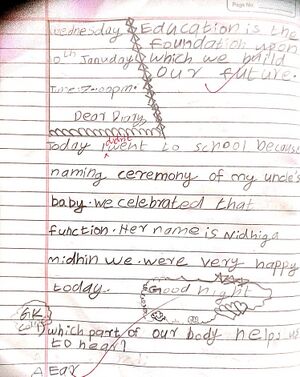 Wednesday
10th January
Time: 7:00pm.
Education is the
foundation upon
which we build
our future.
Dear Diary,
Today I didnt went to school because
naming ceremony of my uncle's
baby. we celebrated that
function. Her name is Nidhiga
midhin we were very happy
today. Good night
GK
1) which part of our body helps us
to hear?
A Ear